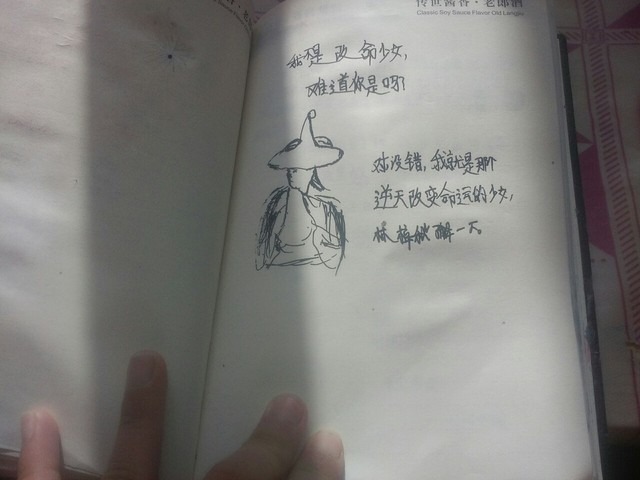 传世酱香·老郎酒
Classic Soy Sauce Flavor Old Langjiu
我不是改命少女,
难道你是吗?
对没错,我就是那个
逆天改变命运的少女,
一下。